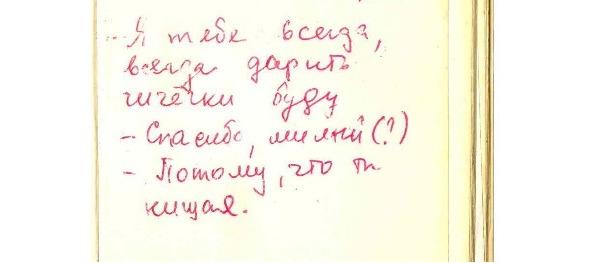 - Я тебе всегда,
всегда дарить
чичечки буду
- Спасибо, милый (?)
- Потому, что ты
нищая.